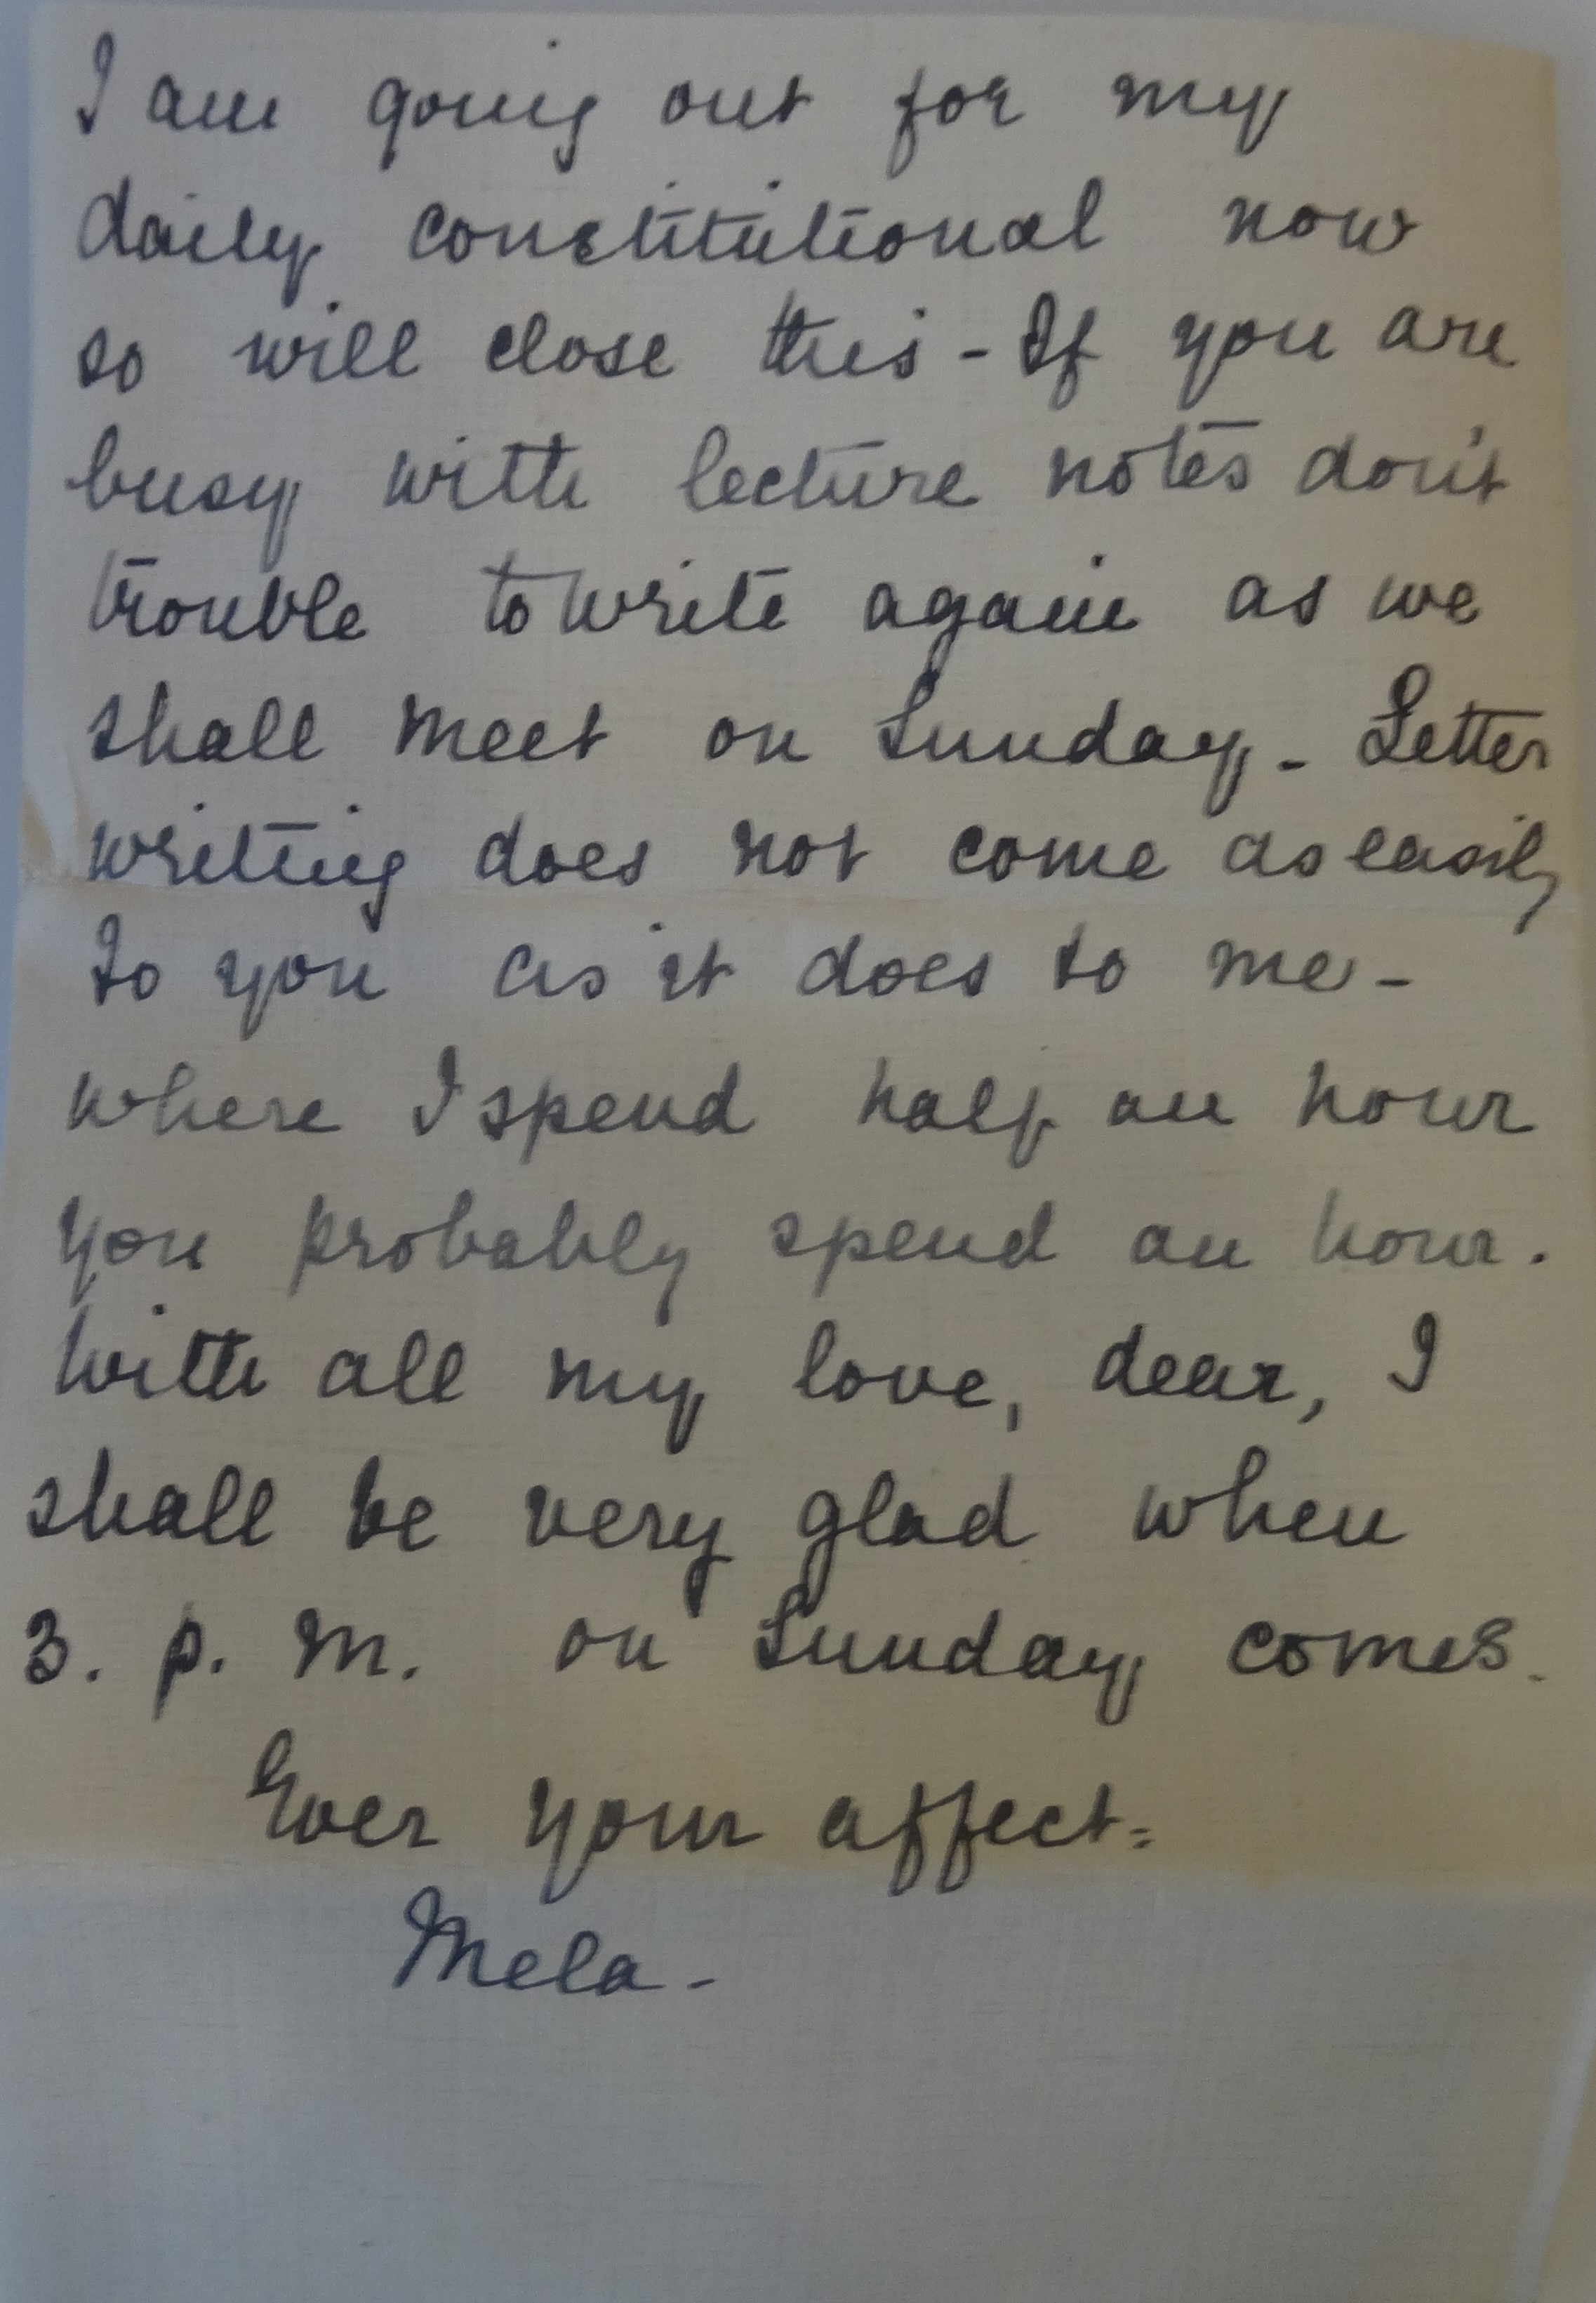 I am going out for my
daily constitutional now
so will close this - If you are
busy with lecture notes don't
trouble to write again as we
shall meet on Sunday - Letter
writing does not come as easily
to you as it does to me -
where I spend half an hour
you probably spend an hour.
With all my love, dear, I
shall be very glad when
3. p. m. on Sunday comes.
Ever your affect=
Mela -